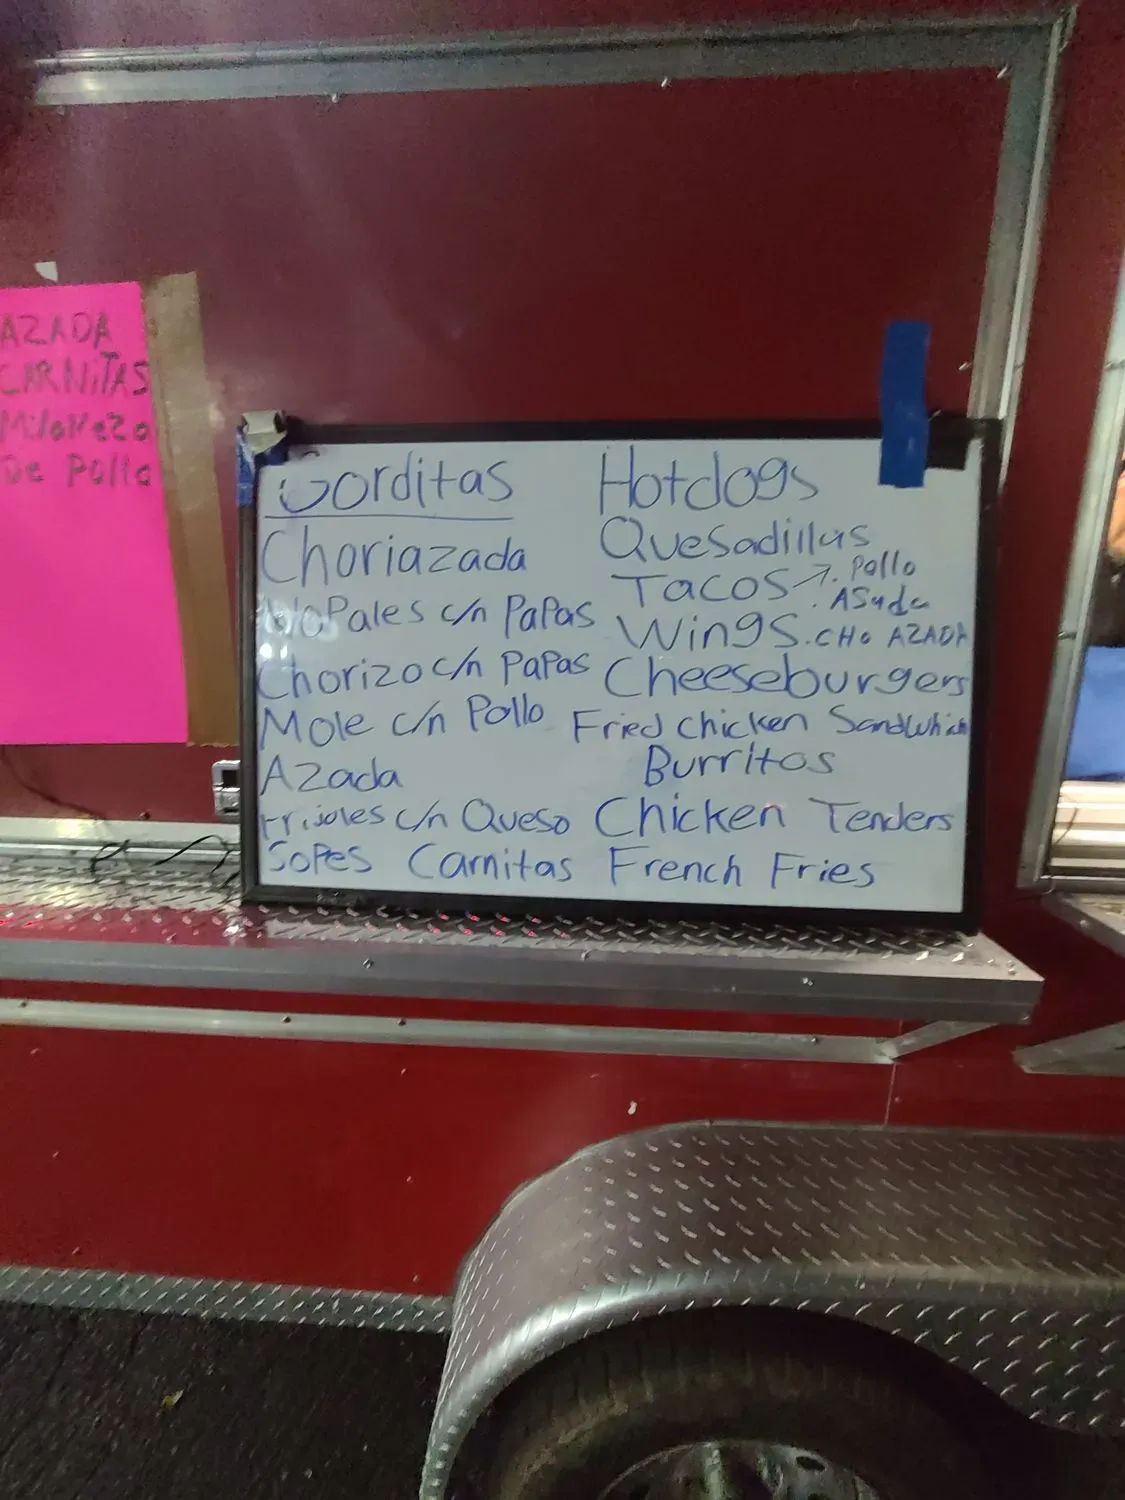 AZADA
CARNiTAS
MilaNeza
De Pollo
Gorditas
Choriazada
NoPales c/n PaPas
Chorizo c/n PaPas
Mole c/n Pollo
Azada
Frijoles c/n Queso
SoPes Carnitas
Hotdogs
Quesadillas
Tacos → . Pollo
. ASada
Wings . CHo AZADA
Cheeseburgers
Fried chicken Sandwhich
Burritos
Chicken Tenders
French Fries